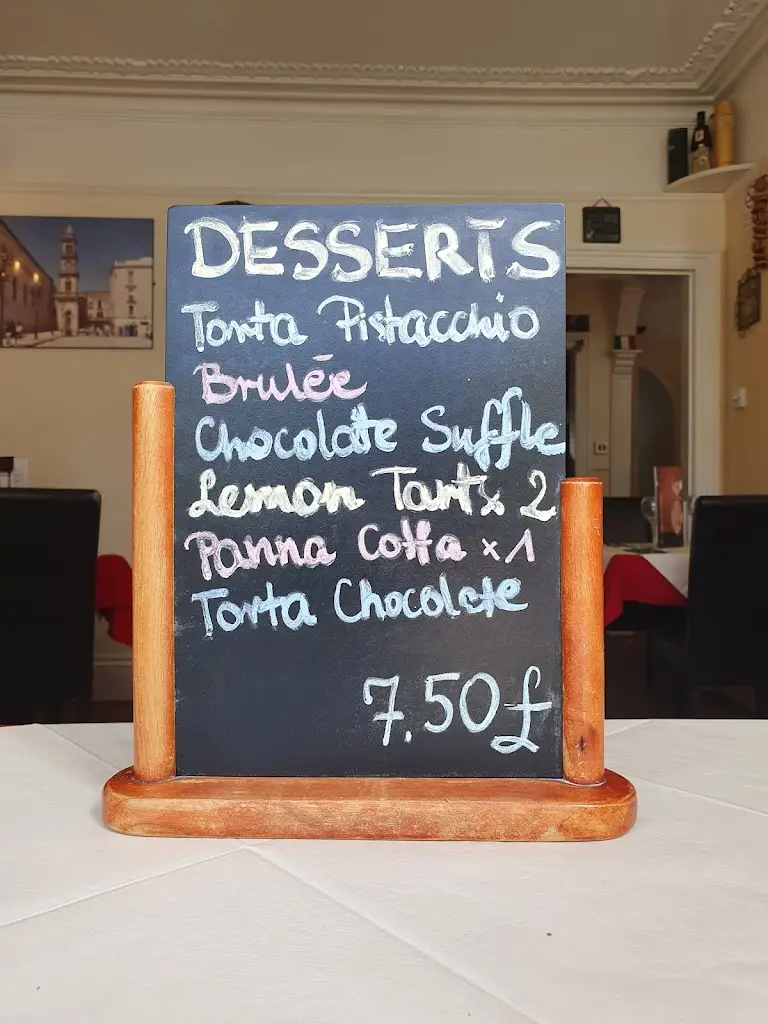 DESSERTS
Torta Pistacchio
Brulēe
Chocolate Suffle
Lemon Tart x 2
Panna Cotta x1
Torta Chocolate
7.50£